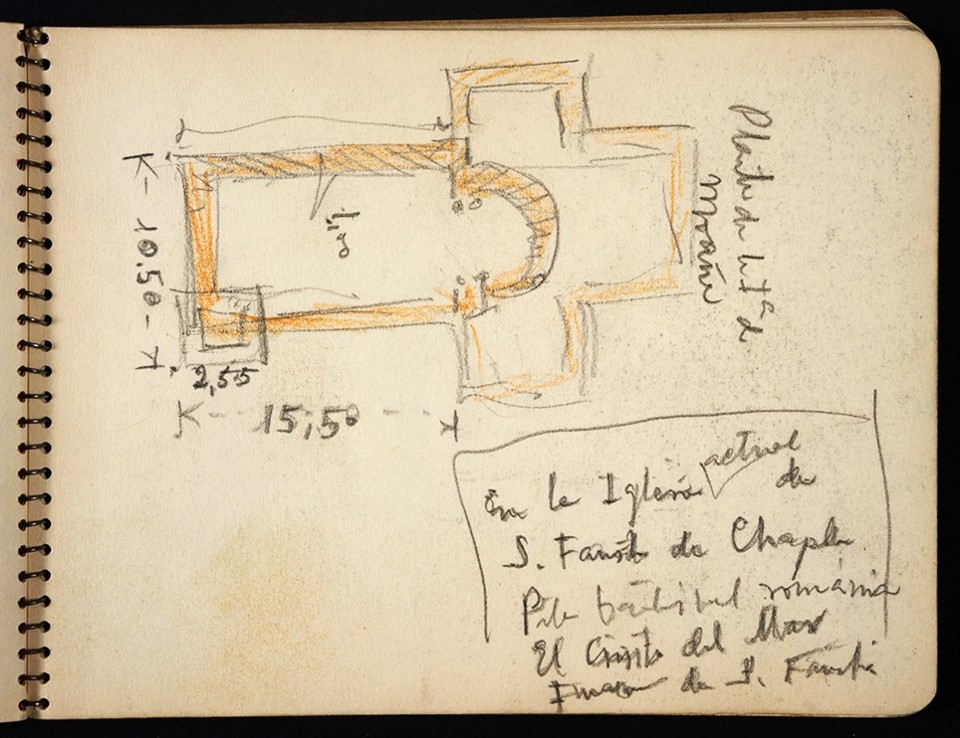 Planta de
Moañe
10.50
1,00
2,55
15,50
En la Iglesia actual de
S. Fausto de Chapela
Pila bautismal románica
El Cristo del Mar
Imagen de S. Fausto